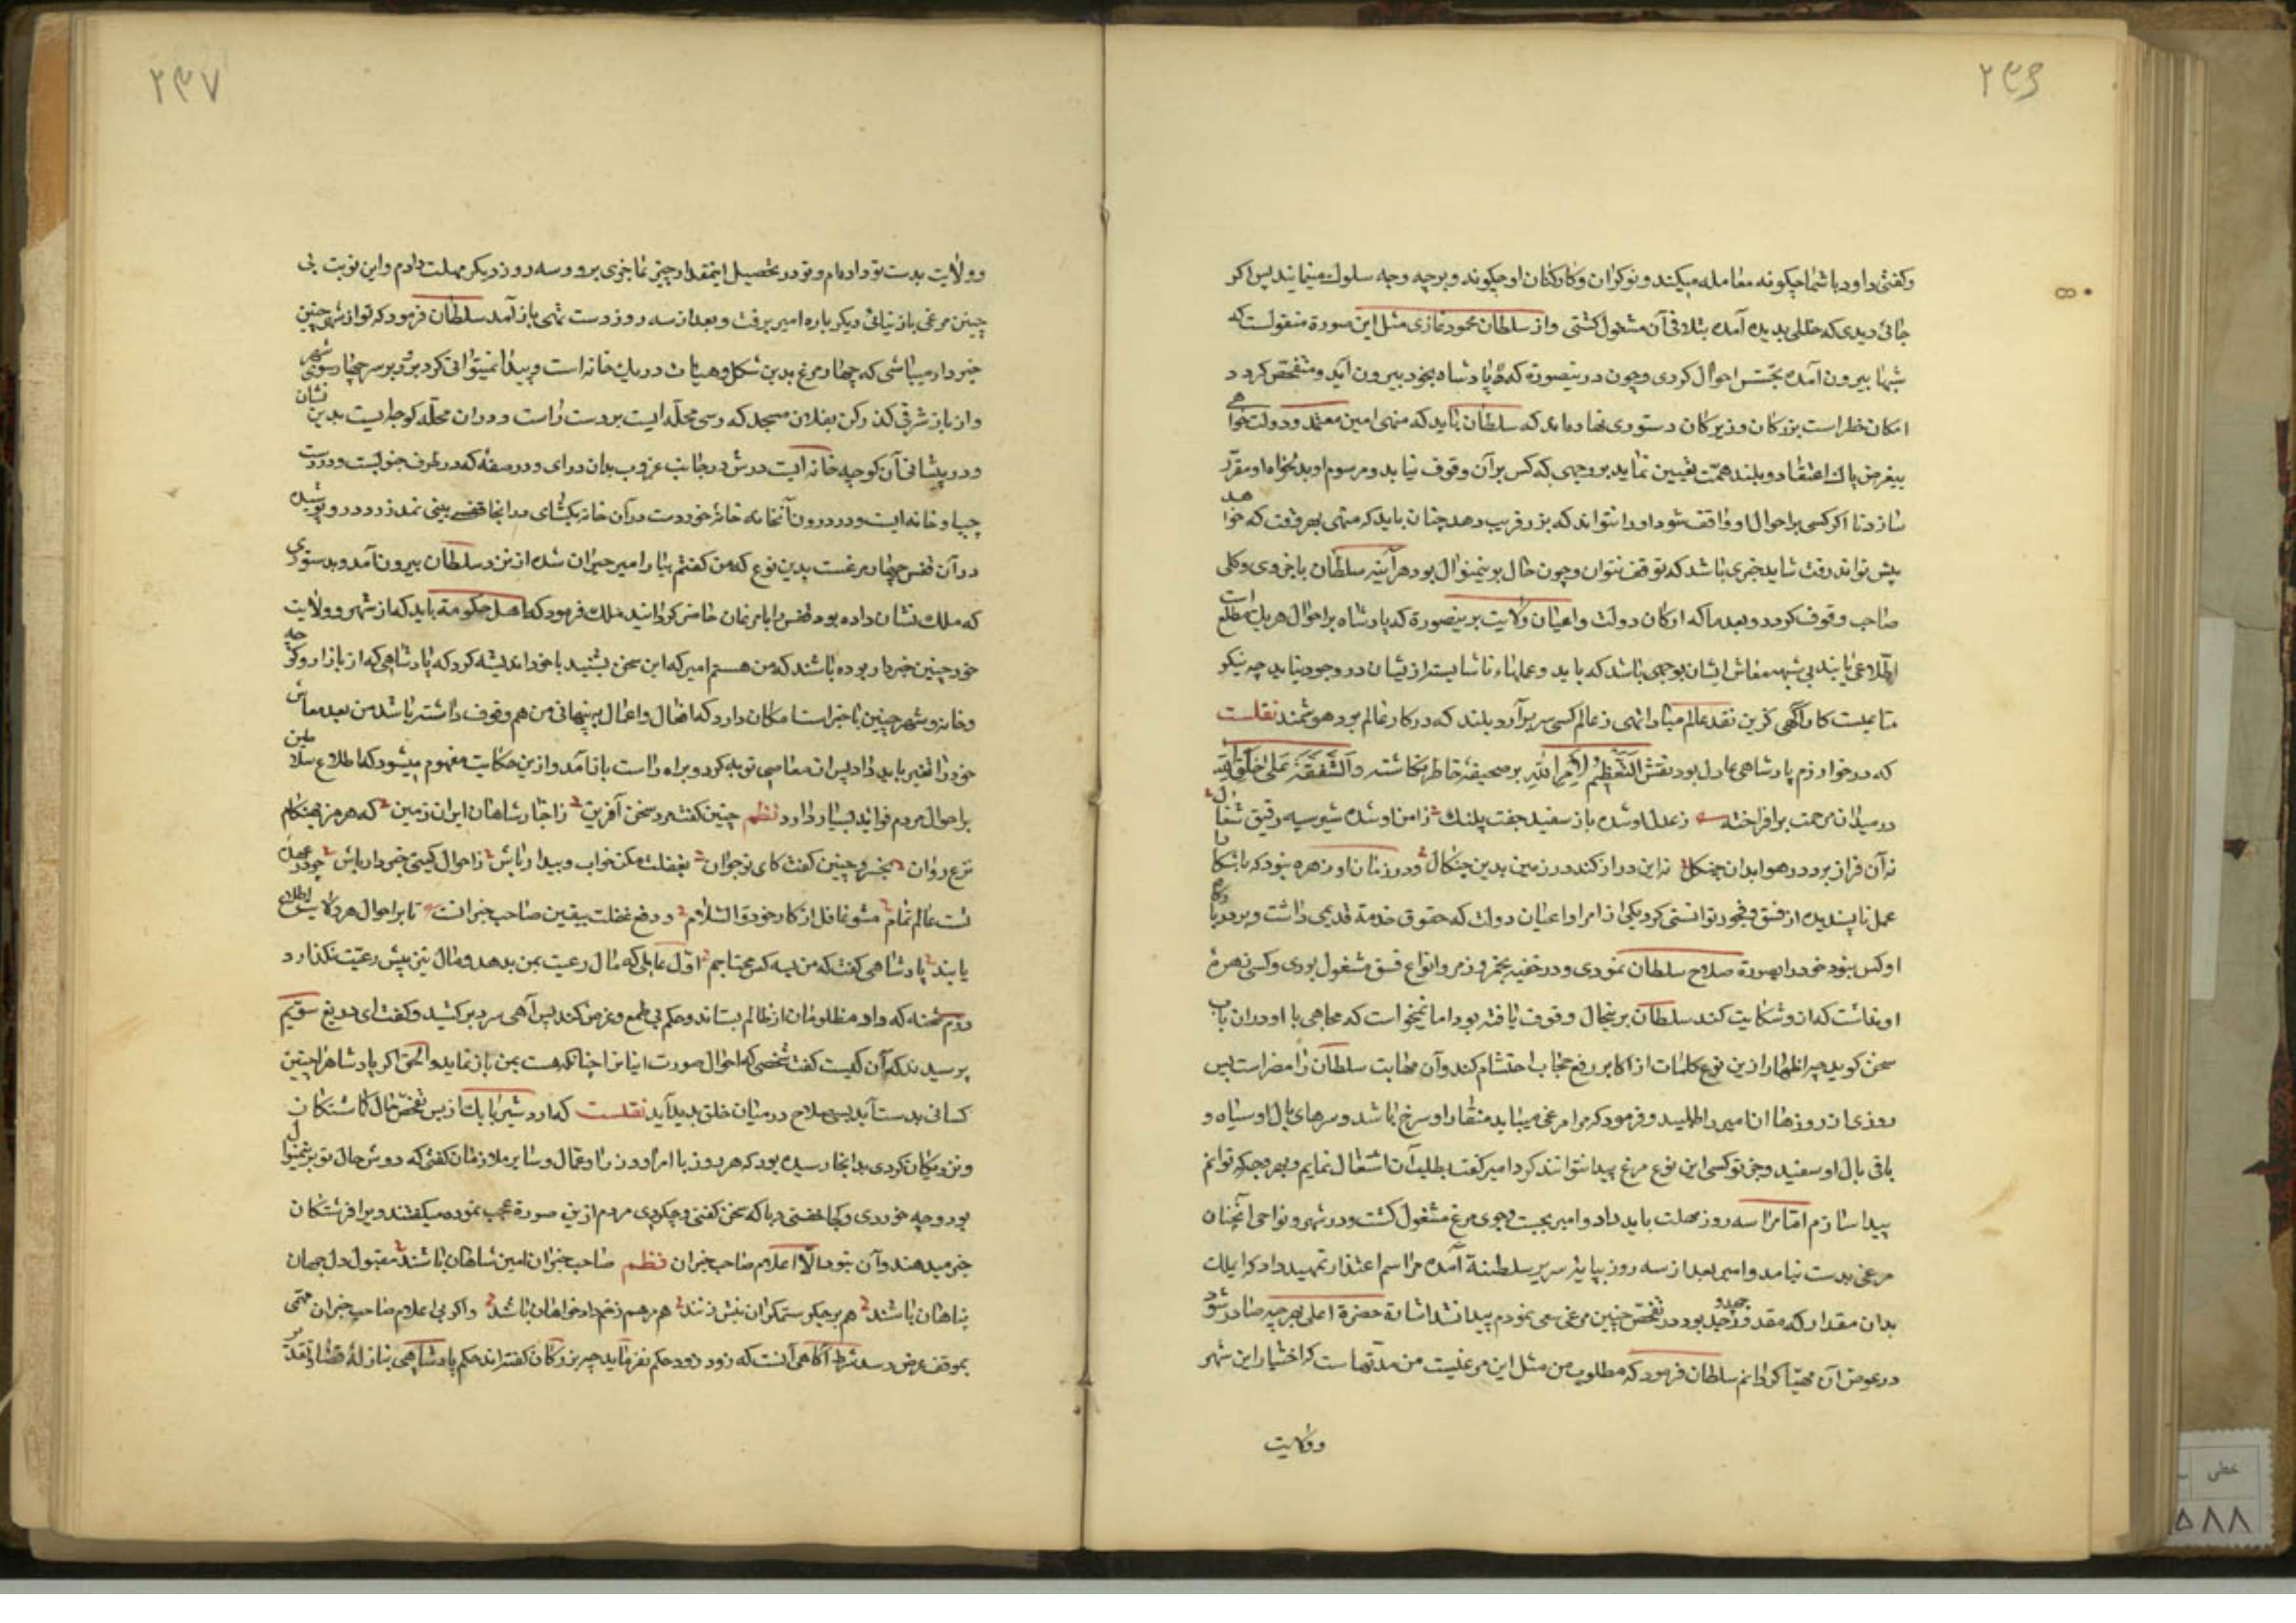 ۲۳۶
وکفتی داود با شما چکونه معامله میکند و نوکران و کارکنان او چکونند و برچه وجه سلوك مینمایند پس اکر
جائی دیدی که خللی پدید آمده بتلافی آن مشغول کشتی و از سلطان محمود غازی مثل این صورة منقولست که
شبها بیرون آمده تجسّس احوال کردی و چون درینصورة که پادشاه بخود بیرون آید و متفحّص کردد
امکان خطر است بزرکان و زیرکان دستوری نهاده‌اند که سلطان باید که منهی امین معتمد و دولت خواهی
بیغرض پاك اعتقاد و بلند همّت تعیین نماید بروجهی که کس بر آن وقوف نیابد و مرسوم او بدلخواه او مقرّر
سازد تا اکر کسی بر احوال او واقف شود او را نتواند که بزر فریب دهد چنان باید که منهی بهر وقت که خواهد
پیش تواند رفت شاید خبری باشد که توقف نتوان و چون حال برینمنوال بود هرآینه سلطان با جزوی و کلی
صاحب وقوف کردد و بعد ماکه ارکان دولت و اعیان ولایت برینصورة که پادشاه بر احوال هریك مطّلع است
اطّلاعی یابند بی شبهه معاش ایشان بوجهی باشد که باید و عملهاء ناشایسته ازیشان در وجود نیاید چه نیکو
متاعیست کار آگهی کزین نقد عالم مبادا تهی ز عالم کسی سر برآرد بلند که در کار عالم بود هوشمند نقلست
که در خوارزم پادشاهی عادل بود نقش التَّعْظِیمُ لِاَمْرِ اللهِ بر صحیفهٔ خاطر نکاشته و اَلشَّفَقَةُ عَلی خَلْقِ اللهِ
در میدان مرحمت برافراخته ز عدل او شده باز سفید جفت پلنك ز امن او شده شیر سیه رفیق شغال
نه آن فراز برد در هوا بدان چنکال نه این دراز کند در زمین بدین چنکال و در زمان او زهره نبود که باشکارا
عمل ناپسندیده از فسق و فجور توانستی کرد یکی از امرا و اعیان دولت که حقوق خدمة قدیمی داشت و بر درکاه
او کس نبود خود را بصورة صلاح سلطان نمودی و در خفیه بخمر و زمر و انواع فسق مشغول بودی و کسی زهرهٔ
او نداشت که ازو شکایت کند سلطان برینحال وقوف یافته بود اما نمیخواست که مجاهی با او در ان باب
سخن کوید چه اظهار ازین نوع کلمات از اکابر رفع حجاب احتشام کند و آن مهابت سلطان را مضر است پس
روزی از روزها ان امیر را طلبید و فرمود که مرا مرغی میباید منقار او سرخ باشد و سرهای بال او سیاه و
باقی بال او سفید و جز تو کسی این نوع مرغ پیدا نتواند کرد امیر کفت بطلب آن اشتغال نمایم و بهر وجه که توانم
پیدا سازم اما مرا سه روز مهلت باید داد و امیر بجست و جوی مرغ مشغول کشت و در شهر و نواحی آنچنان
مرغی بدست نیامد و امیر بعد از سه روز بپایهٔ سریر سلطنة آمده مراسم اعتذار تمهید داد که ای ملك
بدان مقدار که مقدور جهد و جد بود در تفحّص چنین مرغی سعی نمودم پیدا نشد اشارة حضرة اعلی بهرچه صادر شود
در عوض آن مهیّا کردانم سلطان فرمود که مطلوب من مثل این مرغیست من مدّتهاست که اختیار این شهر
وولایت
۲۳۷
وولایت بدست تو داده‌ام و تو در تحصیل اینمقدار چیز عاجزی برو و سه روز دیکر مهلت دادم و این نوبت بی
چنین مرغی باز نیائی دیکر باره امیر برفت و بعد از سه روز دست تهی باز آمد سلطان فرمود که تو از شهری چنین
خبردار میباشی که چهار مرغ بدین شکل و هیأت در یك خانه است و پیدا نمیتوانی کرد برو بر سر چهار سوی شهر
و از بازار شرقی کذر کن بفلان مسجد که رسی محله‌ایست بر دست راست و در ان محلّه کوچه‌ایست بدین نشان
و در پیشانی آن کوچه خانه‌ایست درش در جانب غروب بدان درای و در صفّه که در طرف جنوبست و در دست
چپ او خانه‌ایست و در درون آنخانه خانهٔ خوردست در آن خانه بکشای در انجا قفسی بینی نمد زرد در و پوشیده
در آن قفس چهار مرغست بدین نوع که من کفتم بیار امیر حیران شده از نزد سلطان بیرون آمد و بدستوری
که ملك نشان داده بود قفس را با مرغان حاضر کردانید ملك فرمود که اهل حکومة باید که از شهر و ولایت
خود چنین خبردار بوده باشند که من هستم امیر که این سخن بشنید با خود اندیشه کرد که پادشاهی که از بازار و کوچه
و خانه و شهر چنین با خبر است امکان دارد که افعال و اعمال پنهانی من هم وقوف داشته باشد من بعد معاش
خود را تغییر باید داد پس از معاصی توبه کرد و براه راست باز آمد و ازین حکایت مفهوم میشود که اطلاع سلاطین
بر احوال مردم فواید بسیار دارد نظم چنین کفته مرد سخن آفرین ز اخبار شاهان ایران زمین که هرمز بهنکام
نزع روان بخسرو چنین کفت کای نوجوان بغفلت مکن خواب و بیدار باش ز احوال کیتی خبردار باش چو در عهدهٔ
تست عالم تمام مشو غافل از کار خود والسّلام و دفع غفلت بیقین صاحب خبرانست تا بر احوال هر ولایت اطلاع
یابند پادشاهی کفت که من بسه کس محتاجم اوّل عاملی که مال رعیت بمن بدهد و مال نیز پیش رعیّت نکذارد
دوّم شحنه که داد مظلومان از ظالم بستاند و حکم بی طمع و غرض کند پس آهی سرد برکشید و کفت ای دریغ سوّیم
پرسیدند که آن کیست کفت شخصی که احوال صورت اینانرا چنانکه هست بمن باز نماید والحق اکر پادشاه را چنین
کسانی بدست آید بسی صلاح در میان خلق پدید آید نقلست که اردشیر بابك از بس تفحّص حال کماشتکان
و نزدیکان کردی بدانجا رسیده بود که هر روز با امرا و وزرا و عمّال و سایر ملازمان کفتی که دوش حال تو برینمنوال
بود و چه خوردی و کجا خفتی و با که سخن کفتی و چکردی مردم ازین صورة عجب نموده میکفتند ویرا فرشتکان
خبر میدهند و آن نبود الّا اعلام صاحب خبران نظم صاحب خبران امین شاهان باشند مقبول دل جهان
پناهان باشند هم بر جکر ستمکران نیش زنند هم مرهم زخم داد خواهان باشند و اکر بی اعلام صاحب خبران مهمّی
بموقف عرض رسد شرط آکاهی آنست که زود زود حکم نفرماید چه بزرکان کفته‌اند حکم پادشاهی بمنازلهٔ قضا و تقدیر